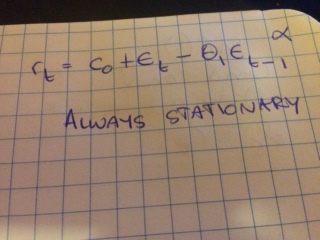 r_t = c_0 + ε_t - θ_1 ε_{t-1}^α
ALWAYS STATIONARY